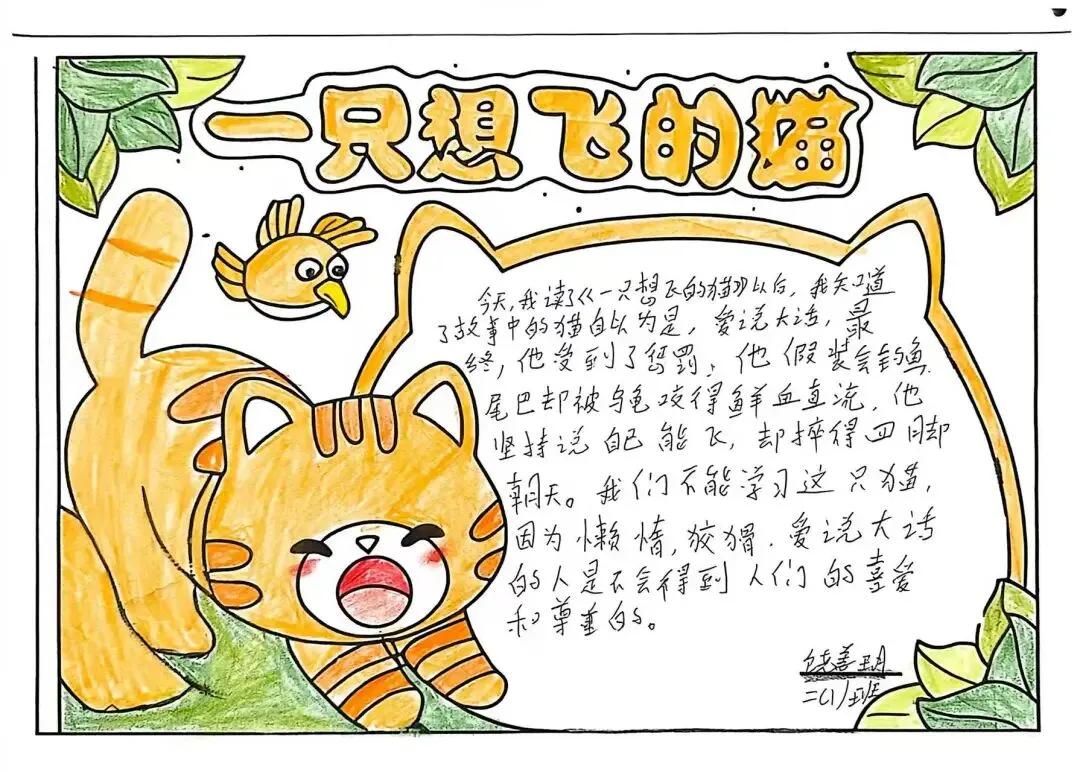 一只想飞的猫
今天,我读了《一只想飞的猫》以后,我知道
了故事中的猫自以为是,爱说大话,最
终,他受到了惩罚,他假装会钓鱼
尾巴却被乌龟咬得鲜血直流,他
坚持说自己能飞,却摔得四脚
朝天。我们不能学习这只猫,
因为懒惰,狡猾.爱说大话
的人是不会得到人们的喜爱
和尊重的。
饶善玥
二(1)班